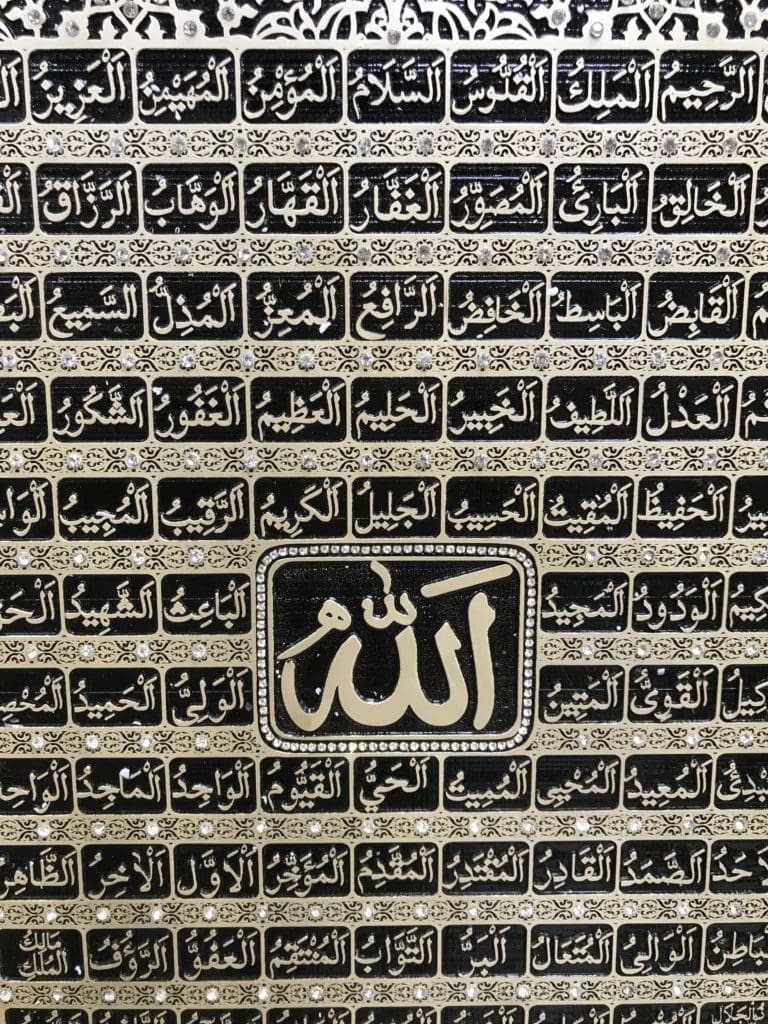 اَلرَّحِيمُ اَلْمَلِكُ اَلْقُدُّوسُ اَلسَّلَامُ اَلْمُؤْمِنُ اَلْمُهَيْمِنُ اَلْعَزِيزُ
اَلْخَالِقُ اَلْبَارِئُ اَلْمُصَوِّرُ اَلْغَفَّارُ اَلْقَهَّارُ اَلْوَهَّابُ اَلرَّزَّاقُ
اَلْقَابِضُ اَلْبَاسِطُ اَلْخَافِضُ اَلرَّافِعُ اَلْمُعِزُّ اَلْمُذِلُّ اَلسَّمِيعُ
اَلْعَدْلُ اَللَّطِيفُ اَلْخَبِيرُ اَلْحَلِيمُ اَلْعَظِيمُ اَلْغَفُورُ اَلشَّكُورُ
اَلْحَفِيظُ اَلْمُقِيتُ اَلْحَسِيبُ اَلْجَلِيلُ اَلْكَرِيمُ اَلرَّقِيبُ اَلْمُجِيبُ
اَلْوَدُودُ اَلْمَجِيدُ اَلْبَاعِثُ اَلشَّهِيدُ
اَللّٰه
اَلْقَوِيُّ اَلْمَتِينُ اَلْوَلِيُّ اَلْحَمِيدُ
اَلْمُعِيدُ اَلْمُحْيِي اَلْمُمِيتُ اَلْحَيُّ اَلْقَيُّومُ اَلْوَاجِدُ اَلْمَاجِدُ اَلْوَاحِدُ
اَلصَّمَدُ اَلْقَادِرُ اَلْمُقْتَدِرُ اَلْمُقَدِّمُ اَلْمُؤَخِّرُ اَلْاَوَّلُ اَلْاٰخِرُ اَلظَّاهِرُ
اَلْوَالِي اَلْمُتَعَالُ اَلْبَرُّ اَلتَّوَّابُ اَلْمُنْتَقِمُ اَلْعَفُوُّ اَلرَّؤُفُ مَالِكُ الْمُلْكِ